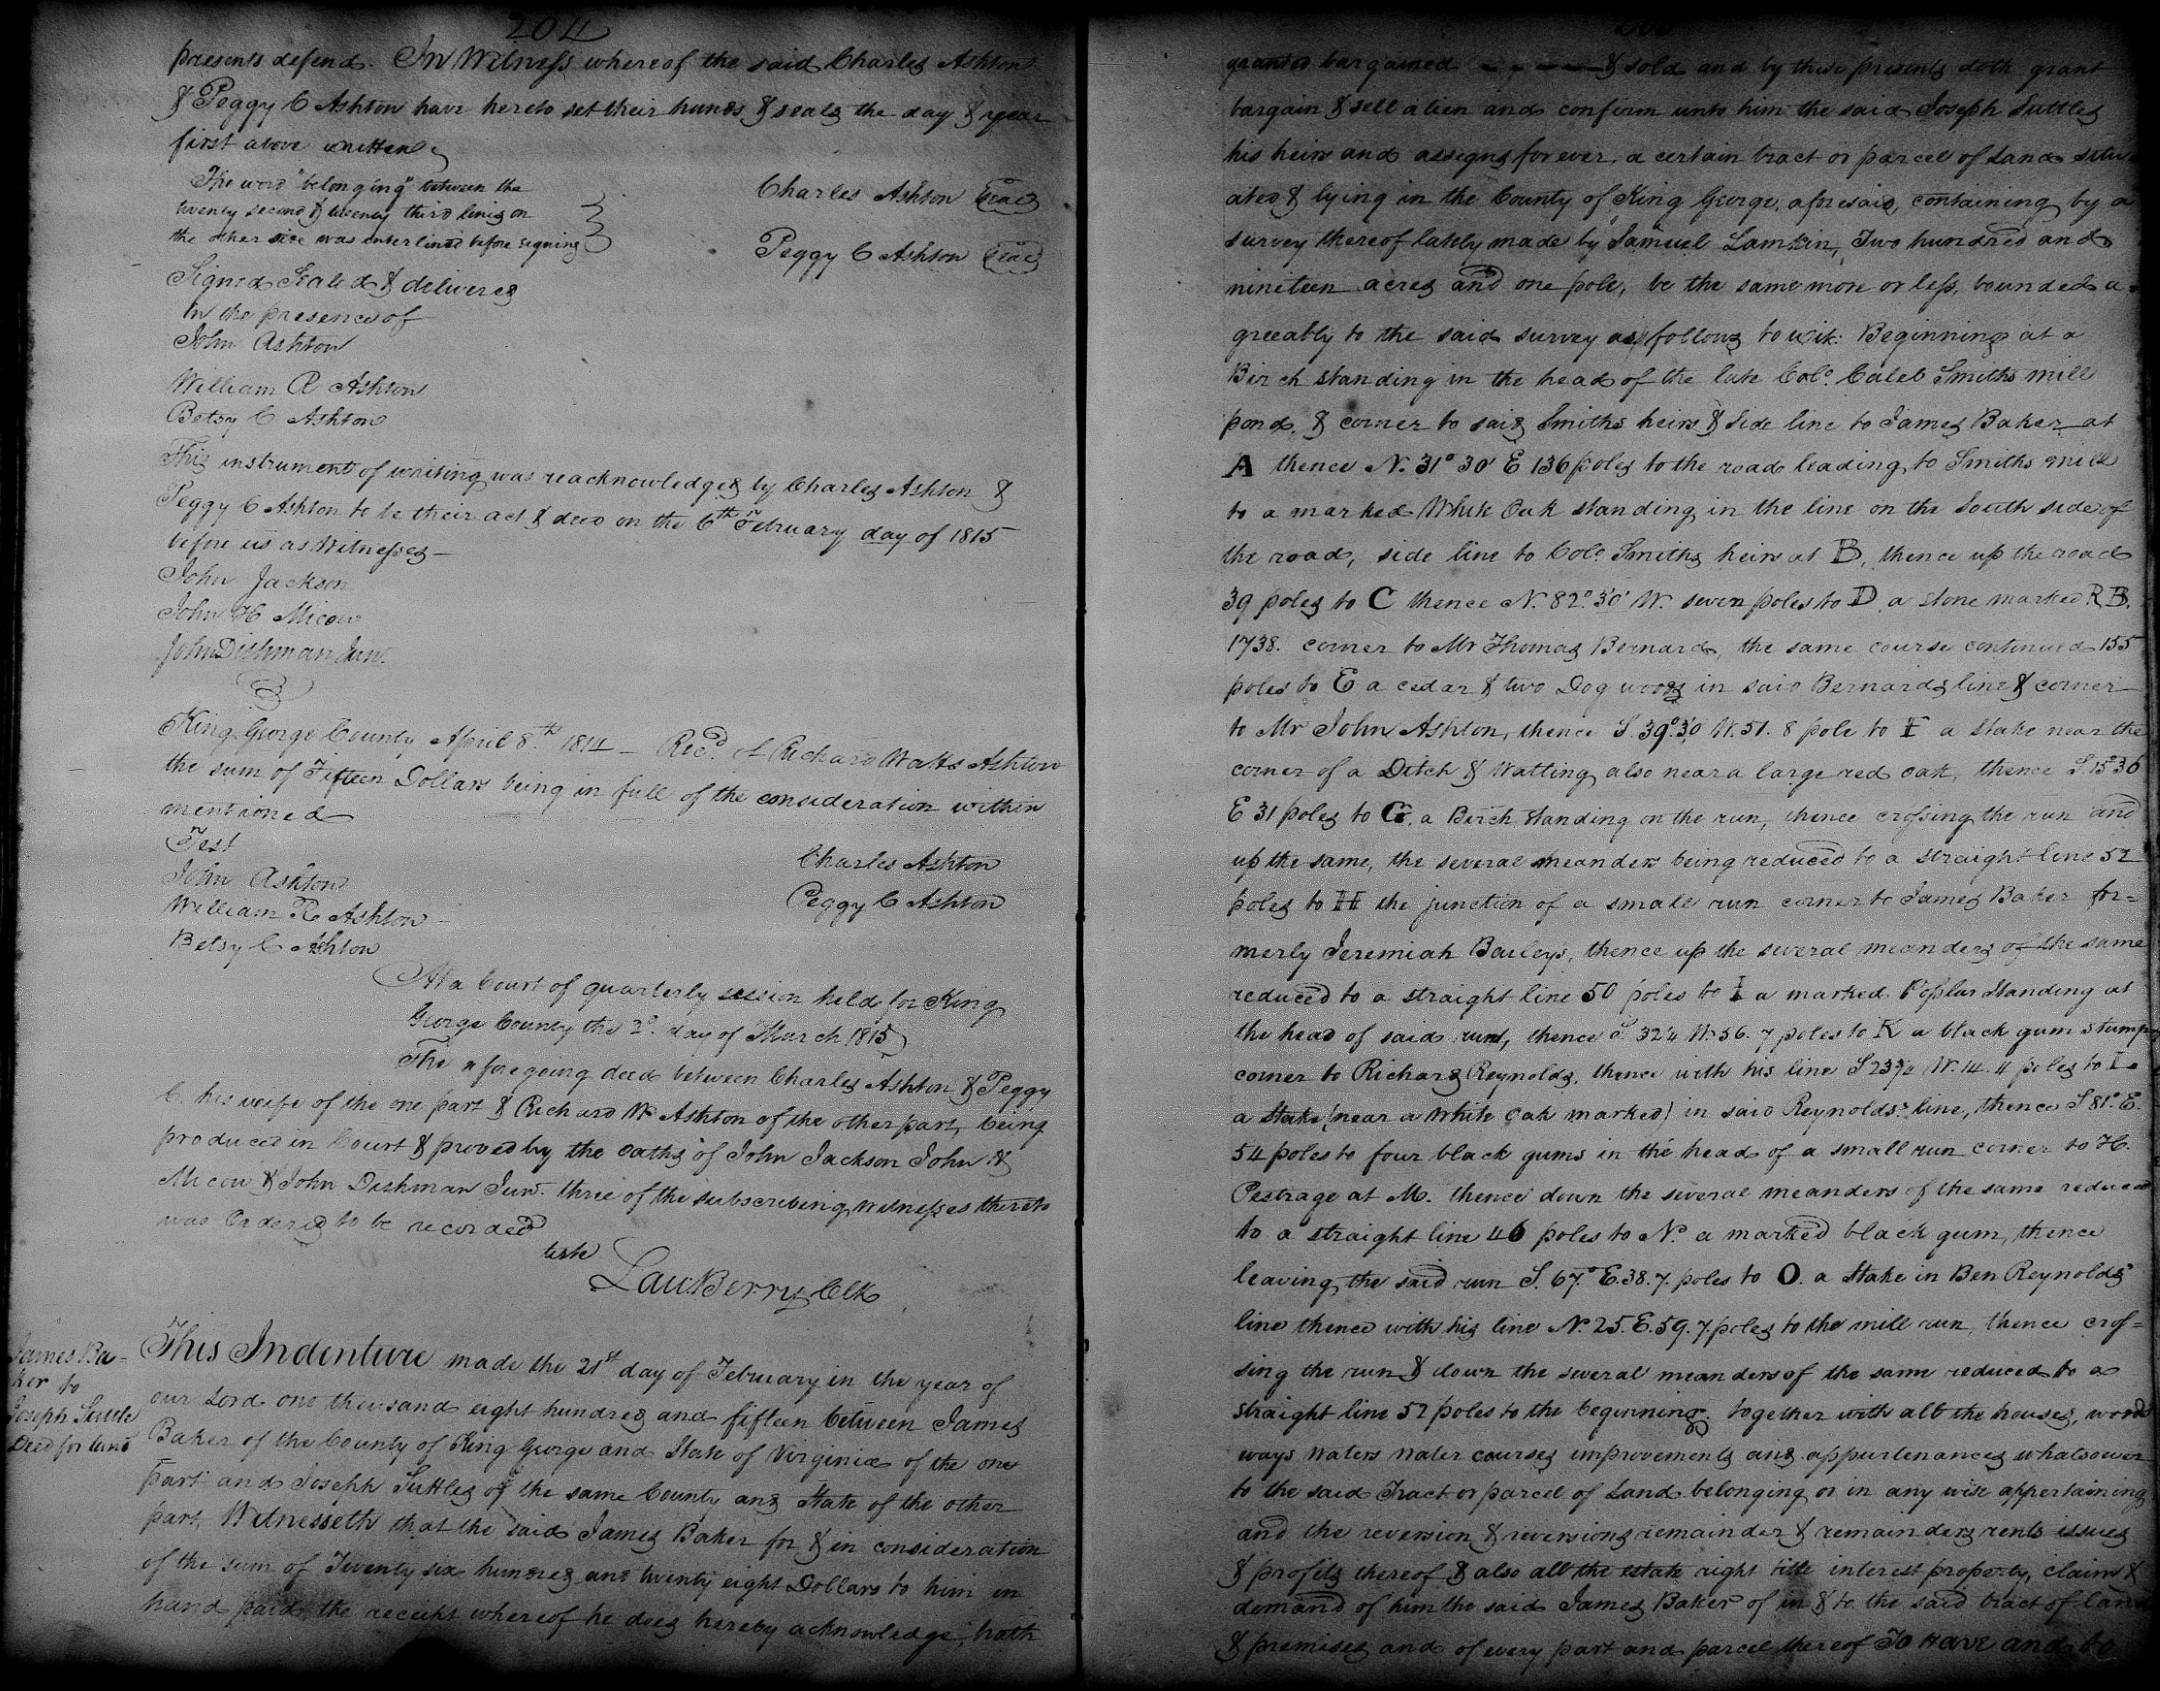 204
presents defend. In Witness whereof the said Charles Ashton
& Peggy C Ashton have hereto set their hands & seals the day & year
first above written
The word "belonging" between the
twenty second & twenty third lines on
the other side was enterlined before signing
Charles Ashton Seal
Peggy C Ashton Seal
Signed Sealed & delivered
in the presence of
John Ashton
William R Ashton
Betsy C Ashton
This instrument of writing was reacknowledged by Charles Ashton &
Peggy C Ashton to be their act & deed on the 6th February day of 1815
before us as Witnesses
John Jackson
John H Micou
John Dishman Junr.
King George County April 8th 1814 - Recd. of Richard Watts Ashton
the sum of Fifteen Dollars being in full of the consideration within
mentioned
Test
John Ashton
William R Ashton
Betsy C Ashton
Charles Ashton
Peggy C Ashton
At a Court of quarterly session held for King
George County the 2d. day of March 1815
The aforegoing deed between Charles Ashton & Peggy
C. his wife of the one part & Richard W Ashton of the other part, being
produced in Court & proved by the oaths of John Jackson John H
Micou & John Dishman Junr. three of the subscribing witnesses thereto
was Ordered to be recorded
teste
Lau: Berry Clk
James Ba-
ker to
Joseph Suttle
Deed for land
This Indenture made the 21st day of February in the year of
our Lord one thousand eight hundred and fifteen between James
Baker of the County of King George and State of Virginia of the one
part and Joseph Suttles of the same County and State of the other
part, Witnesseth that the said James Baker for & in consideration
of the sum of Twenty six hundred and twenty eight Dollars to him in
hand paid, the receipt whereof he does hereby acknowledge, hath
granted bargained - - - - & sold and by these presents doth grant
bargain & sell alien and confirm unto him the said Joseph Suttles
his heirs and assigns forever, a certain tract or parcel of Land situ
ated & lying in the County of King George, aforesaid, containing by a
survey thereof lately made by Samuel Lamkin, Two hundred and
nineteen acres and one pole, be the same more or less, bounded a-
greeably to the said survey as follows to wit: Beginning at a
Birch standing in the head of the late Colo. Caleb Smiths mill
pond, & corner to said Smiths heirs & side line to James Baker at
A thence N. 31° 30' E 136 poles to the road leading to Smiths mill
to a marked White Oak standing in the line on the South side of
the road, side line to Colo. Smiths heirs at B, thence up the road
39 poles to C thence N. 82° 30' W. seven poles to D a stone marked R.B.
1738. corner to Mr Thomas Bernard, the same course continued 155
poles to E a cedar & two Dog woods in said Bernards line & corner
to Mr John Ashton, thence S. 39° 30 W. 51. 8 pole to F a stake near the
corner of a Ditch & Watting also near a large red oak, thence S 15° 30
E 31 poles to G. a Birch standing on the run, thence crossing the run and
up the same, the several meanders being reduced to a straight line 52
poles to H the junction of a small run corner to James Baker for=
merly Jeremiah Baileys, thence up the several meanders of the same
reduced to a straight line 50 poles to I a marked Poplar standing at
the head of said run, thence S. 32¼ W. 56. 7 poles to K a black gum stump
corner to Richard Reynolds, thence with his line S 23½ W. 14. 4 poles to L
a Stake (near a White Oak marked) in said Reynolds's line, thence S 81° E.
54 poles to four black gums in the head of a small run corner to H.
at M. thence down the several meanders of the same reduced
to a straight line 46 poles to N. a marked black gum, thence
leaving the said run S. 67.° E. 38. 7. poles to O. a Stake in Ben Reynolds'
line thence with his line N. 25. E. 59. 7. poles to the mill run, thence cros=
sing the run & down the several meanders of the same reduced to a
straight line 52 poles to the beginning. together with all the houses, woods
ways waters water courses improvements and appurtenances whatsoever
to the said Tract or parcel of Land belonging or in any wise appertaining
and the reversion & reversions remainder & remainders rents issues
& profits thereof & also all the estate right title interest property, claim &
demand of him the said James Baker of in & to the said tract of land
& premises and of every part and parcel thereof To Have and to